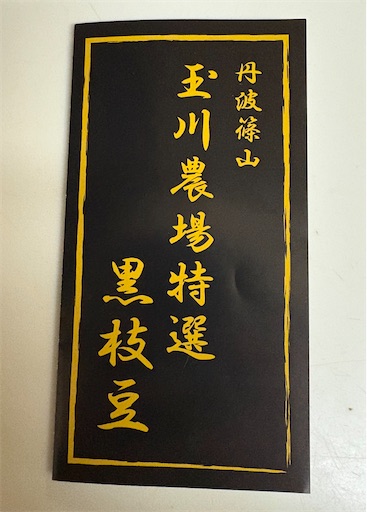 丹波篠山
玉川農場特選
黒枝豆